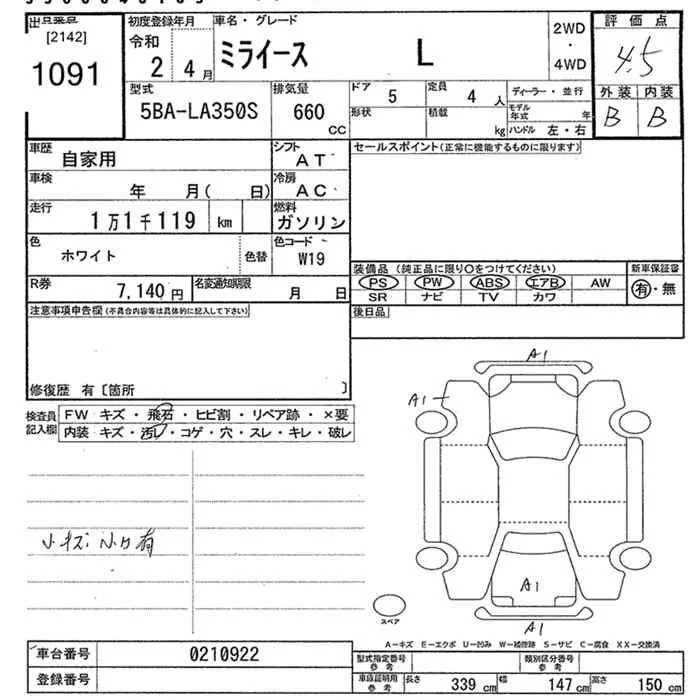 [2142]
1091
初度登録年月
令和
2 4月
車名・グレード
ミライース L
2WD
・
4WD
評価点
4.5
外装 内装
B B
型式
5BA-LA350S
排気量
660
CC
ドア
5
定員
4人
形状
積載
kg
ディーラー・並行
モデル年式 年
ハンドル 左・右
車歴
自家用
シフト
AT
車検
年 月( 日)
冷房
AC
走行
1万1千119 km
燃料
ガソリン
色
ホワイト
色替
色コード
W19
R券
7,140円
名変通知期限
月 日
セールスポイント(正常に機能するものに限ります)
装備品 (純正品に限り○をつけてください)
新車保証書
PS PW ABS エアB AW
有・無
SR ナビ TV カワ
後日品
注意事項申告欄(不具合内容等は具体的に記入して下さい)
修復歴 有〔箇所 〕
検査員
記入欄
FW キズ・飛石・ヒビ割・リペア跡・×要
内装 キズ・汚レ・コゲ・穴・スレ・キレ・破レ
小キズ 小凹 有
A1
A1
A1
A1
スペア
A-キズ E-エクボ U-凹み W-補修跡 S-サビ C-腐食 XX-交換済
車台番号 0210922
登録番号
型式指定番号
参考
類別区分番号
参考
車庫証明用
参考
長さ 339 cm 幅 147 cm 高さ 150 cm